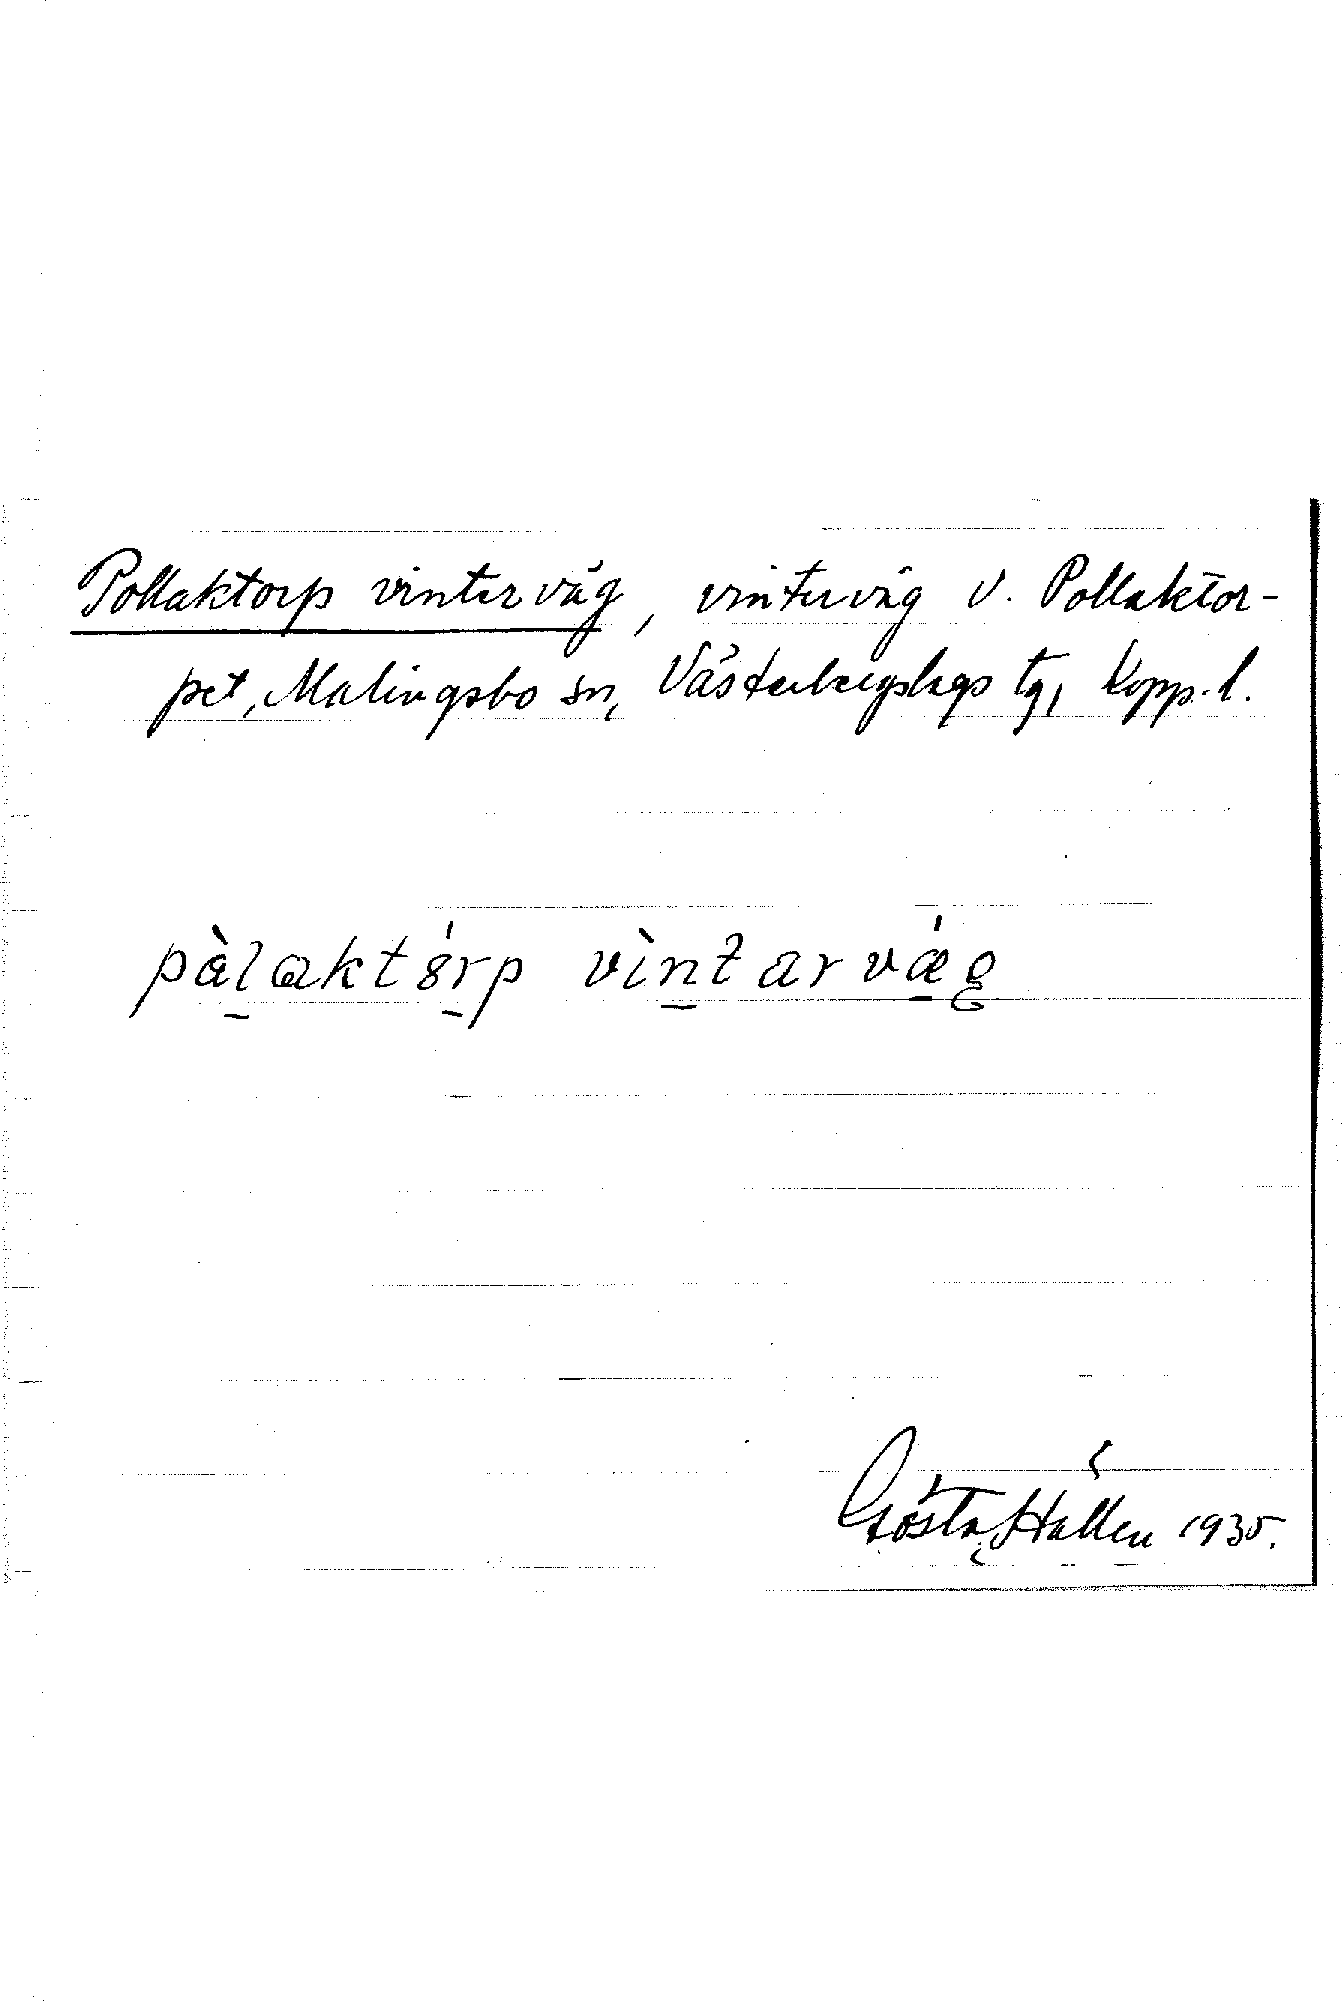 Pollaktorp vinterväg, vinterväg v. Pollaktor-
pet, Malingsbo sn, Västerbergslags tg, Kopp. l.
pàlaktórp vìntarvǽg
Gösta Hallén 1935.